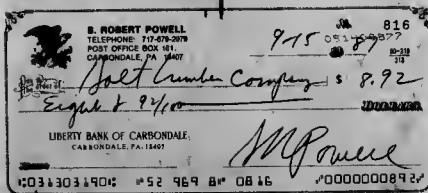 B. ROBERT POWELL 816
TELEPHONE: 717-679-2979
POST OFFICE BOX 181.
CARBONDALE, PA 18407
9-15 89
Holt Lumber Company $ 8.92
Eight & 92/100
LIBERTY BANK OF CARBONDALE
CARBONDALE, PA. 18407
Powell
⑆031303190⑆ ⑈52 969 8⑈ 0816 ⑈0000000892⑈